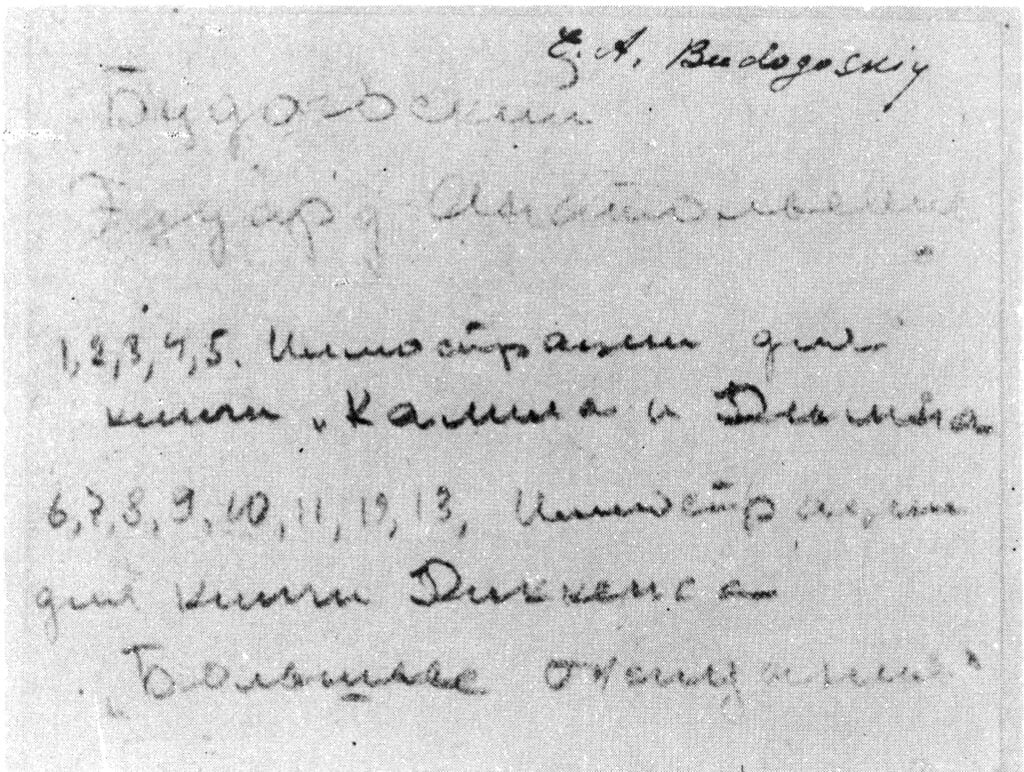 E. A. Budogoskiy
Будогоский
Эдуард Анатольевич
1, 2, 3, 4, 5. Иллюстрации для
книги „Калила и Дымна
6, 7, 8, 9, 10, 11, 12, 13, Иллюстрации
для книги Диккенса
„Большие ожидания"